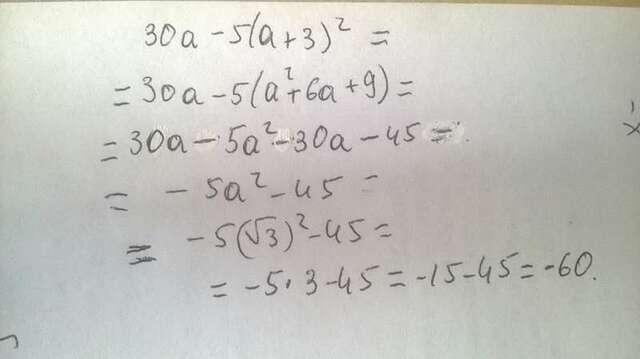 30a - 5(a+3)² =
= 30a - 5(a²+6a+9) =
= 30a - 5a² - 30a - 45 =
= - 5a² - 45 =
= - 5(√3)² - 45 =
= -5·3-45 = -15-45 = -60.